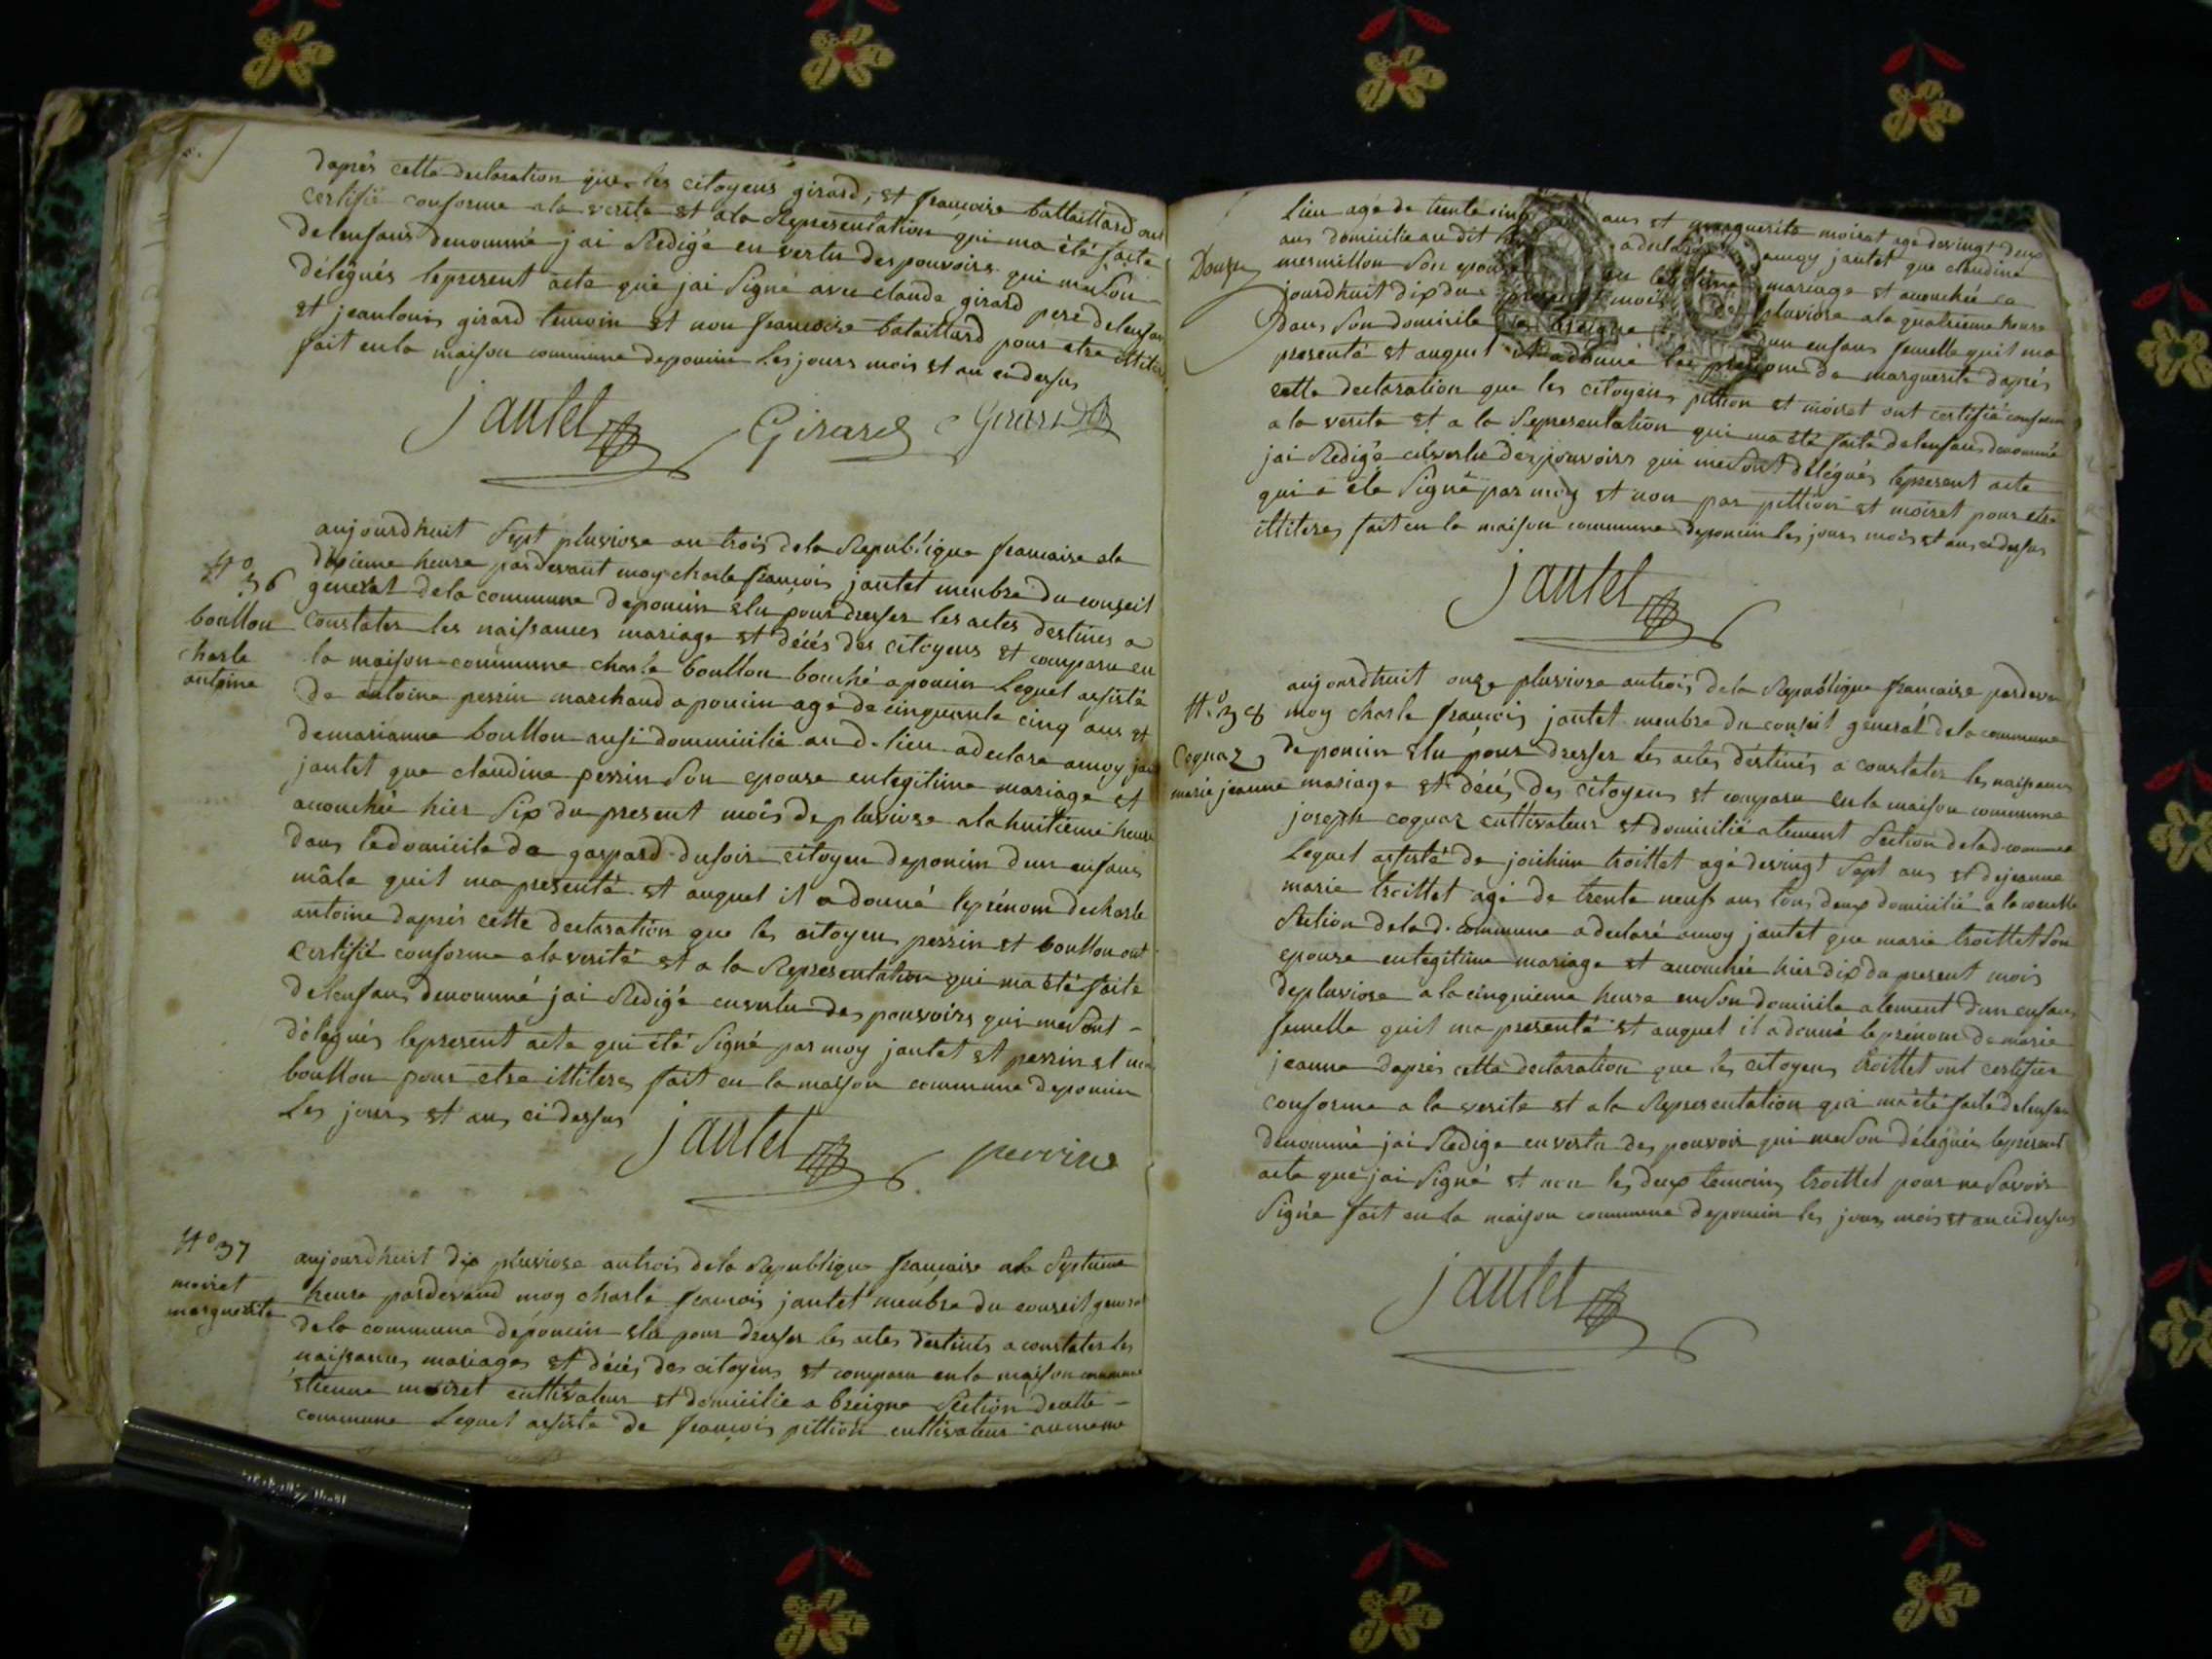 daprés cette declaration que les citoyens girard, et francoise battaillard ont
certifié conforme ala verite et ala Representation qui ma été faite
delenfans denommé jai Redigé en vertu des pouvoirs qui me son
délégués lepresent acte que jai Signé avec claude girard pere delenfan
et jeanlouis girard temoin et non francoise bataillard pour etre illiter
fait enla maison commune deponcin Les jours mois et an cidessus
jantet Girard Girard
N° 36
boullon
charle
antoine
aujourdhuit Sept pluviose an trois dela Republique francaise ala
dixieme heure pardevant moy charle francois jantet menbre du conseil
general dela commune deponcin elu pour dresser les actes destinés a
Constater les naissances mariage et décés des citoyens et comparu en
la maison commune charle boullon bouché aponcin Lequel assisté
de antoine perrin marchand aponcin agé decinquante cinq ans et
demarianne boullon ausi dommicilié aud. lieu adeclaré amoy
jantet que claudine perrin Son epouse enlegitime mariage et
acouchée hier Six du present mois depluviose alahuitieme heure
dans ledomicile de gaspard dufoir citoyen deponcin dun enfans
mâle quil mapresenté et auquel il adonné leprénom decharle
antoine daprés cette declaration que les citoyens perrin et boullon ont
certifié conforme alaverité et a la Representation qui ma été faite
delenfans denommé jai Redigé envertu des pouvoirs qui meSont -
délegués lepresent acte qui été Signé par moy jantet et perrin et non
boullon pour etre illiteres fait en lamaison commune deponcin
Les jours et ans ci dessus
jantet perrin
N° 37
moiret
marguerite
aujourdhuit dix pluviose antrois dela Republique francaise ala Septieme
heure pardevand moy charle francois jantet menbre du conseil general
dela commune deponcin elu pour dresser les actes destinés aconstater les
naissances mariages et décés des citoyens et comparu enla maison commune
etienne moiret cultivateur et domicilié a breigne Section decette -
commune Lequel assisté de francois pittion cultivateur aumeme
Lieu agé de trente cinq ans et marguerite moiret agé devingt deux
ans domicilié au dit adeclaré amoy jantet que claudine
mermillon Son epouse en legitime mariage et acouchée ce
jourdhuit dix du present mois de pluviose ala quatrieme heure
Dans Son domicile a breigne dun enfans femelle quil ma
presenté et auquel il adonné le prénom de marguerite daprés
cette declaration que les citoyens pittion et moiret ont certifié conforme
a la verite et a la Representation qui ma été faite delenfans denommé
jai Redigé envertu des pouvoirs qui meSont délégués lepresent acte
qui a éte Signé par moy et non par pittion et moiret pour etre
illiteres fait en la maison commune deponcin les jours mois et ans cidessus
jantet
N° 38
Coquaz
marie jeanne
aujourdhuit onze pluviose antrois dela Republique francaise pardevan
moy charle francois jantet menbre du conseil general dela commune
deponcin elu pour dresser les actes déstinés a constater les naissances
mariage et décés des citoyens et comparu enla maison commune
joseph coquaz cultivateur et domicilié alement Section delad. commune
Lequel assisté de joichim troittet agé devingt Sept ans et dejeanne
marie troittet agé de trente neuf ans tous deux domicilié a la
Section delad. commune adeclaré amoy jantet que marie troittet Son
epouse enlegitime mariage et acouchée hier dix du present mois
depluviose alacinquieme heure enson domicile alement dun enfans
femelle quil ma presenté et auquel il adonné leprénom demarie
jeanne daprés cette declaration que les citoyens troittet ont certifier
conforme a la verite et ala Representation qui ma été faite delenfan
denommé jai Redigé envertu des pouvoir qui meSon délégués lepresent
acte que jai Signé et non les deux temoins troittet pour ne Savoir
Signé fait en la maison commune deponcin les jours mois et an cidessus
jantet